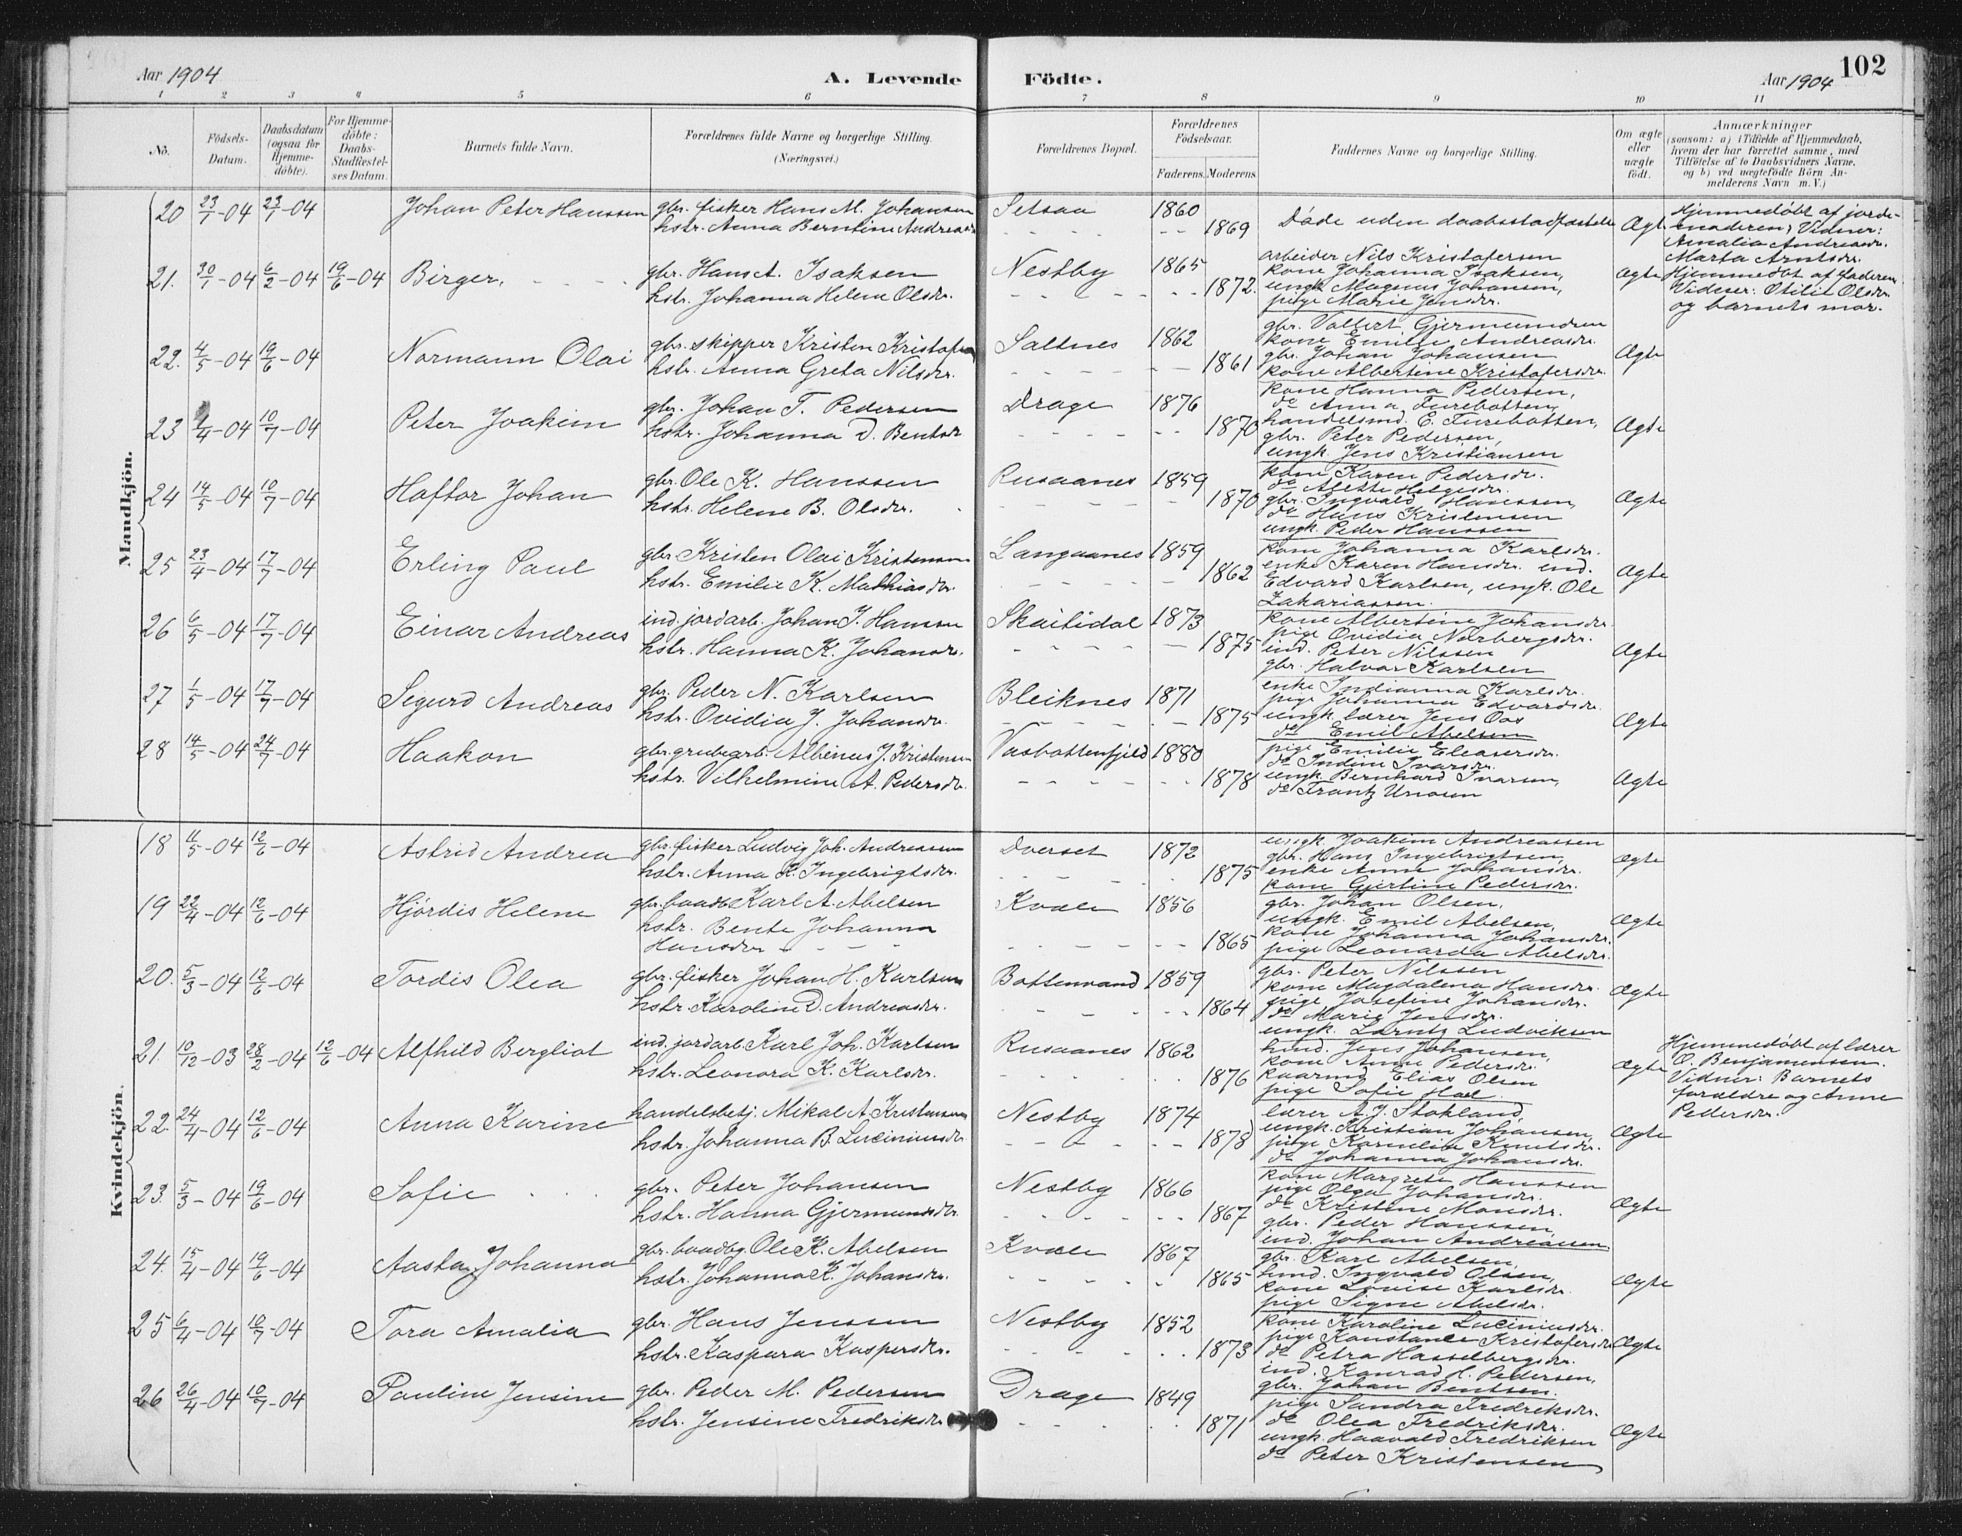 Aar 1904
A. Levende
Födte.
Aar 1904
102
1 2 3 4 5 6 7 8 9 10 11
No.
Födsels-Datum.
Daabsdatum (ogsaa for Hjemme-döbte).
For Hjemme-döbte: Daabs-Stadfæstel-ses Datum.
Barnets fulde Navn.
Forældrenes fulde Navne og borgerlige Stilling. (Næringsvei.)
Forældrenes Bopæl.
Forældrenes Födselsaar.
Faderens. Moderens.
Faddernes Navne og borgerlige Stilling.
Om ægte eller uægte födt.
Anmærkninger
(saasom: a) i Tilfælde af Hjemmedaab,
hvem der har forrettet samme, med
Tilföielse af to Daabsvidners Navne,
og b) ved uægtefödte Börn An-
melderens Navn m. V.)
Mandkjön.
20 23/1-04 23/1-04 Johan Peter Hanssen gbr. fisker Hans M. Johansen Setsaa 1860
hstr. Anna Berntine Andreasdr. 1869 Döde uden daabsstadfæstelse Ægte
Hjemmedöbt af jorde-
moderen, Vidner:
Amalia Andreasdr.
Marta Arntsdr.
21. 30/1-04 6/2-04 19/6-04 Birger. gbr. Hans A. Isaksen Nestby 1865
hstr. Johanna Helena Olsdr. 1872. Ægte
arbeider Nils Kristofersen
kone Johanna Isaksen,
ungk. Magnus Johansen,
pige Marie Jensdr.
Hjemmedöbt af faderen
Vidner: Otilie Olsdr.
og barnets mor.
22. 4/5-04 19/6-04 Normann Olai gbr. skipper Kristen Kristofersen Saltnes 1862
hstr. Anna Greta Nilsdr. 1861 Ægte
gbr. Volfert Gjermundsen
kone Emilie Andreasdr.
gbr. Johan Johansen
kone Albertine Kristofersdr.
23 1/4-04 10/7-04 Peter Joakim gbr. Johan T. Pedersen Drage 1876
hstr. Johanna D. Bentsdr. 1870 Ægte
kone Hanna Pedersen,
do Anna Furebotten,
handelsmd. E. Furebotten,
gbr. Peter Pedersen,
ungk. Jens Kristiansen
24 14/5-04 10/7-04 Haftor Johan gbr. Ole K. Hanssen Rusaanes 1859
hstr. Helene B. Olsdr. 1870 Ægte
kone Karen Pedersdr.
do Alette Helgesdr.
gbr. Ingvald Hanssen,
do Hans Kristensen
ungk. Peder Hanssen
25 23/4-04 17/7-04 Erling Paul gbr. Kristen Olai Kristensen Langaanes 1859
hstr. Emilie K. Mathiasdr. 1862 Ægte
kone Johanna Karlsdr.
enke Karen Hansdr. ind.
Edvard Karlsen, ungk. Ole
Zakariassen.
26 6/5-04 17/7-04 Einar Andreas ind. jordarb. Johan J. Hansen Skaitidal 1873
hstr. Hanna K. Johansdr. 1875 Ægte
kone Albertine Johansdr.
pige Ovidia Norbergsdr.
ind. Peter Nilssen
gbr. Halvar Karlsen
27 1/5-04 17/7-04 Sigurd Andreas gbr. Peder N. Karlsen Bleiknes 1871
hstr. Ovidia J. Johansdr. 1875 Ægte
enke Indianna Karlsdr.
pige Johanna Edvardsdr.
ungk. lærer Jens Oas
do Emil Abelsen
28 14/5-04 24/7-04 Haakon gbr. grubearb. Albinus J. Kristensen Vasbottenfjeld 1880
hstr. Vilhelmine A. Pedersdr. 1878 Ægte
pige Emilie Eleasersdr.
do Indine Ivarsdr.
ungk. Bernhard Ivarsen,
do Frantz Unosen
Kvindekjön.
18 11/5-04 12/6-04 Astrid Andrea gbr. fisker Ludvig Joh. Andreassen Dverset 1872
hstr. Anna K. Ingebrigtsdr. 1875 ægte
ungk. Joakim Andreassen
gbr. Hans Ingebrigtsen,
enke Anne Johansdr.
kone Gjertine Pedersdr.
19 22/4-04 12/6-04 Hjördis Helene gbr. baadb. Karl A. Abelsen Kvæle 1856
hstr. Bente Johanna
Hansdr. 1865 Ægte
gbr. Johan Olsen,
ungk. Emil Abelsen,
kone Johanna Johansdr.
pige Leonarda Abelsdr.
20. 5/3-04 12/6-04 Tordis Olea gbr. fisker Johan H. Karlsen Bottenvand 1859
hstr. Karoline D. Andreasdr. 1864 Ægte
gbr. Peter Nilssen
kone Magdalena Hansdr.
pige Josefine Johansdr.
do Marie Jensdr.
ungk. Larntz Ludviksen
21. 10/12-03 28/2-04 12/6-04 Alfhild Bergliot ind. jordarb. Karl Joh. Karlsen Rusaanes 1862
hstr. Leonora K. Karlsdr. 1876 Ægte
hmd. Jens Johansen,
kone Anne Pedersdr.
kaarmd. Elias Olsen
pige Sofie Hal
Hjemmedöbt af lærer
O. Benjaminsen.
Vidner: Barnets
forældre og Anne
Pedersdr.
22. 24/4-04 12/6-04 Anna Karine handelsbetj. Mikal A. Kristensen Nestby 1874
hstr. Johanna B. Luciniusdr. 1878 Ægte
lærer A. J. Stokland,
ungk. Kristian Johansen,
pige Kornelia Knutsdr.
do Johanna Johansdr.
23. 5/3-04 19/6-04 Sofie gbr. Peter Johansen Nestby 1866
hstr. Hanna Gjermundsdr. 1867 Ægte
kone Margrete Hanssen
pige Olga Johansdr.
do Kristine Monsdr.
gbr. Peder Hanssen,
ind. Johan Andreassen.
24. 15/4-04 19/6-04 Aasta Johanna gbr. baadbg. Ole K. Abelsen Kvæle 1867
hstr. Johanna K. Johansdr. 1865 Ægte
gbr. Karl Abelsen,
hmd. Ingvald Olsen,
kone Lovise Karlsdr.
pige Signe Abelsdr.
25 6/4-04 10/7-04 Tora Amalia gbr. Hans Jenssen Nestby 1852
hstr. Kaspara Kaspersdr. 1873 Ægte
kone Karoline Luciniusdr.
pige Konstance Kristofersdr.
do Petra Hasselbergsdr.
ind. Konrad H. Pedersen,
gbr. Johan Bentsen.
26 26/4-04 10/7-04 Pauline Jensine gbr. Peder M. Pedersen Drage 1849
hstr. Jensine Fredriksdr. 1871 Ægte
pige Sandra Fredriksdr.
do Olea Fredriksdr.
ungk. Haavald Fredriksen
do Peter Kristensen